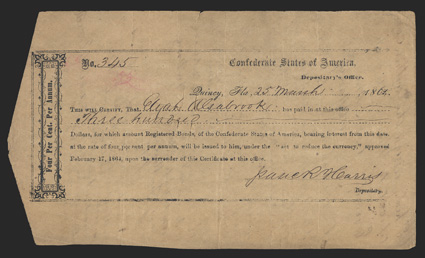 Four Per Cent. Per Annum.
No. 345
Confederate States of America.
Depositary's Office.
Quincy, Fla. 25 March 1864.
This will Certify, That Seabrook has paid in at this office
Three hundred
Dollars, for which amount Registered Bonds, of the Confederate States of America, bearing interest from this date
at the rate of four per cent per annum, will be issued to him, under the "act to reduce the currency," approved
February 17, 1864, upon the surrender of this Certificate at this office.
Harris
Depositary.